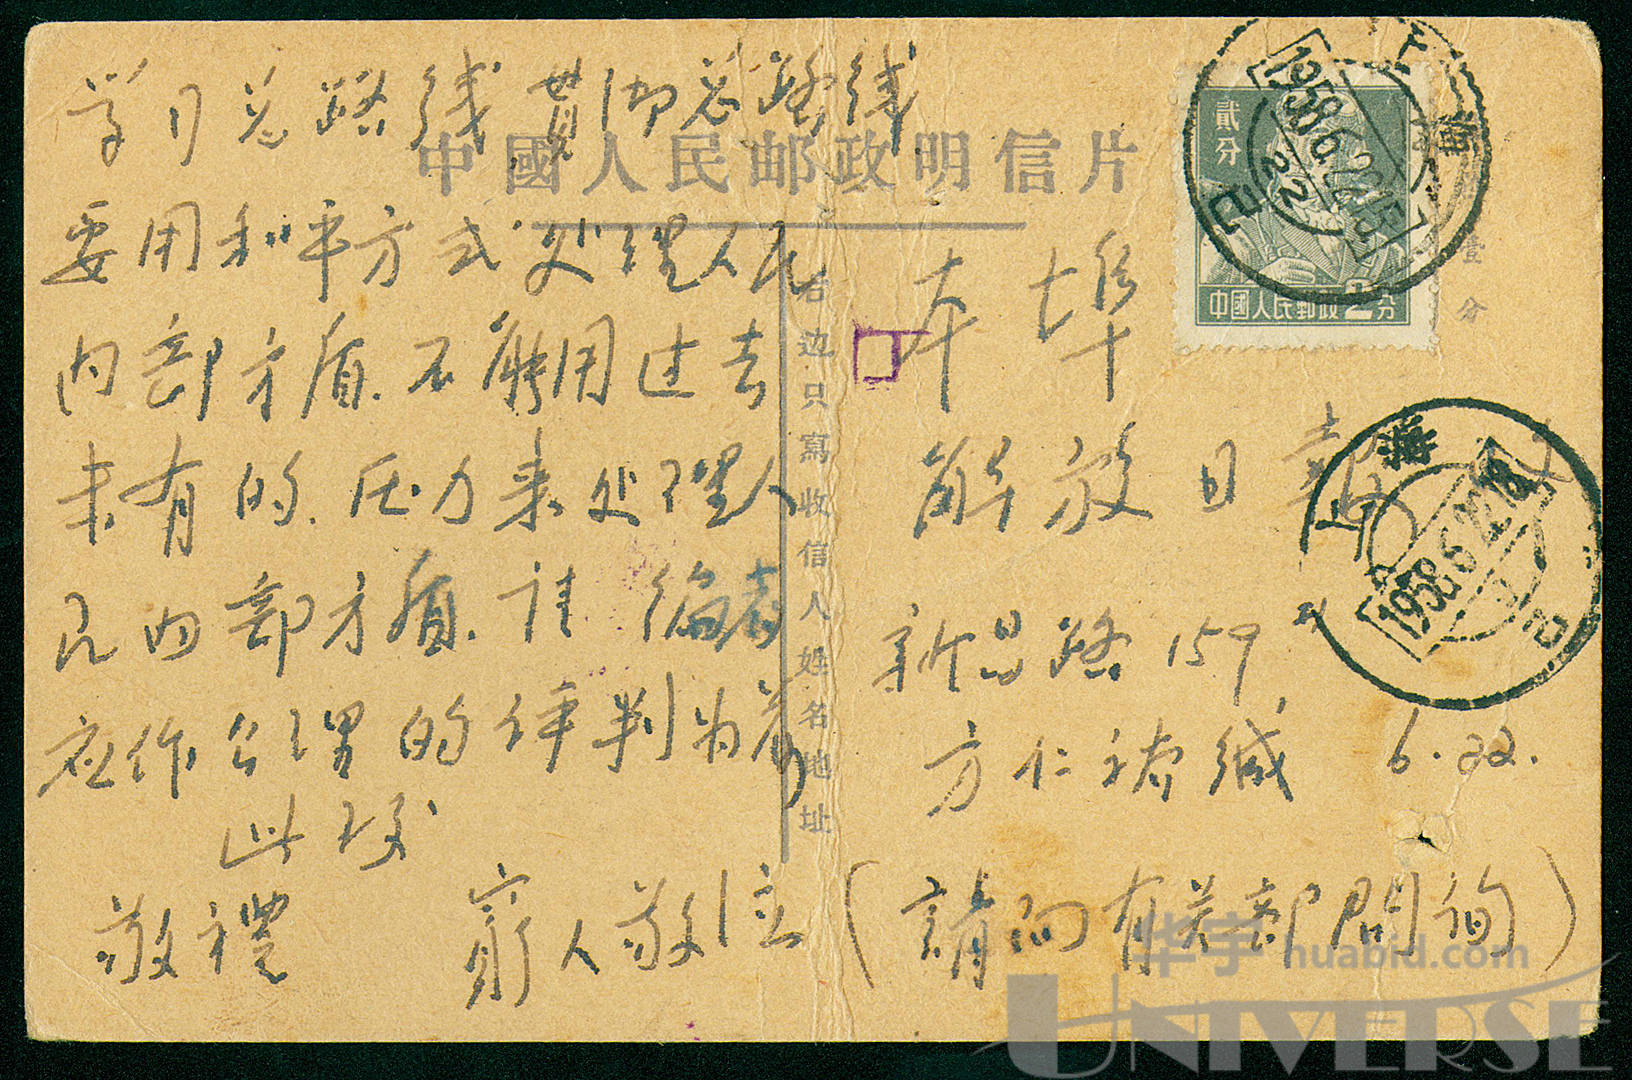 学习总路线 贯彻总路线
中國人民邮政明信片
要用和平方式处理人民
内部矛盾.不能用过去
未有的.压力来处理人
民内部矛盾.请 编者
应作公理的评判为荷
此致
敬禮
穷人敬位
右边只寫收信人姓名地址
本埠
解放日報
新昌路159
方仁 缄 6.22.
(請向有关部門询)
贰分
中國人民郵政 2分
壹分
上海
1958.6.22
上海
1958.6.22
华宇 huabid.com
UNIVERSE